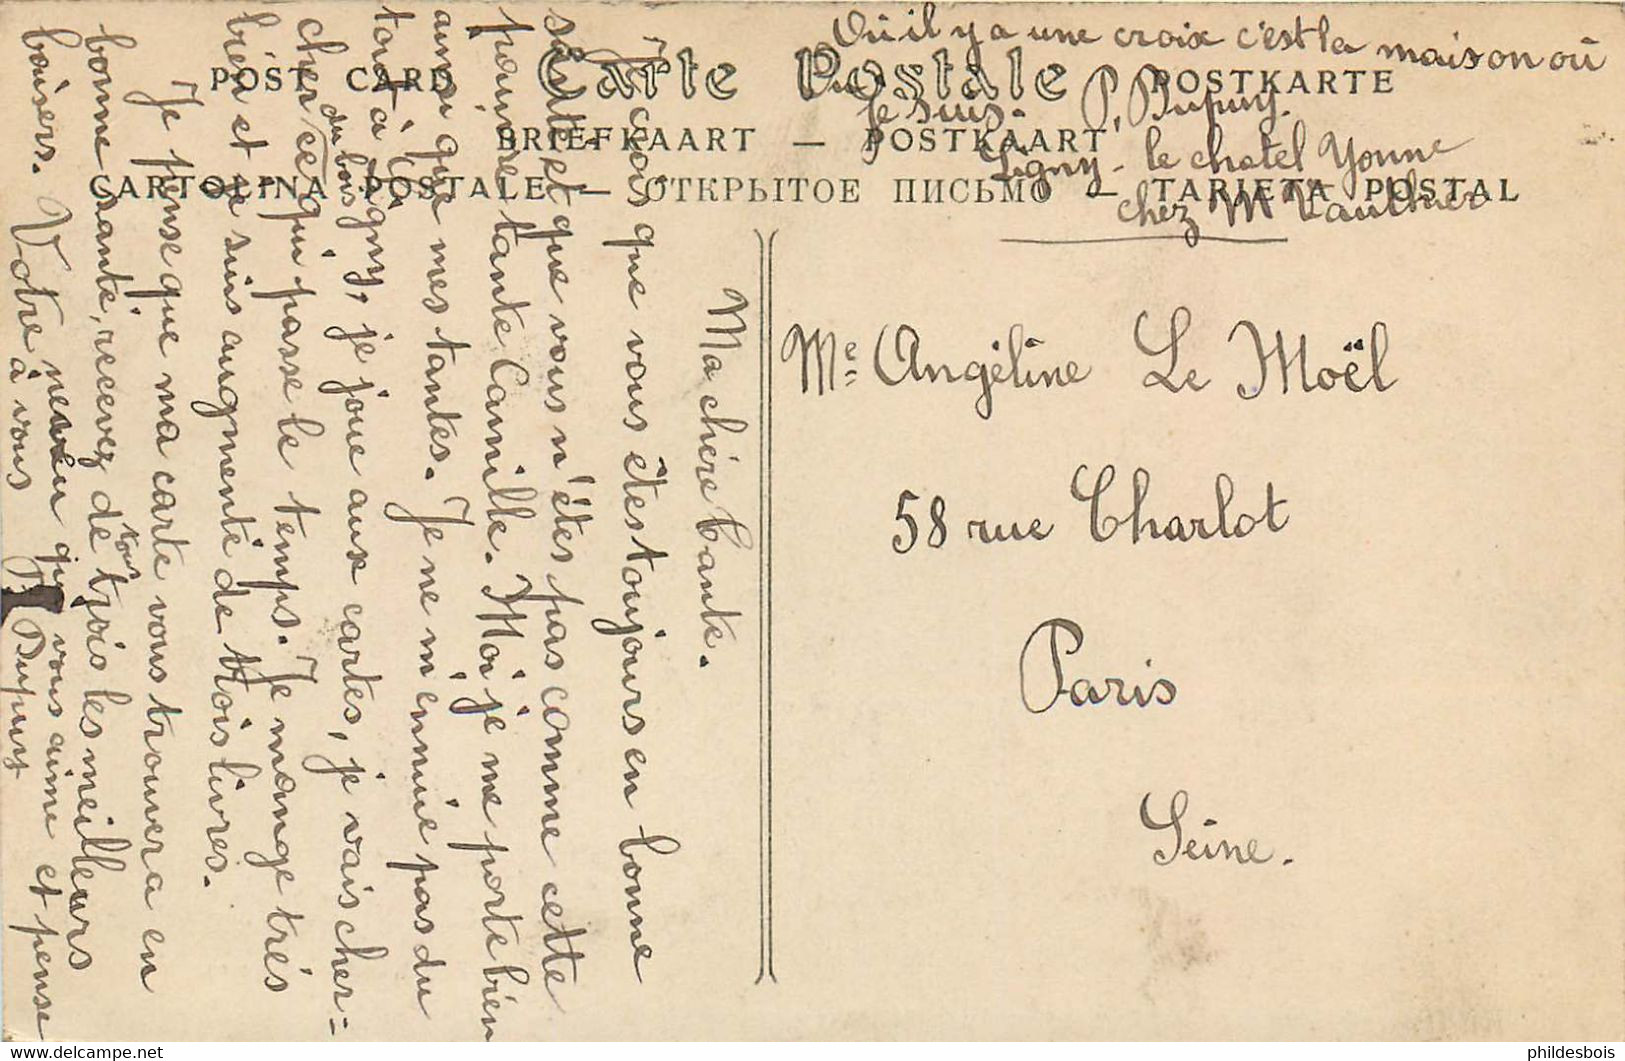 Où il y a une croix c'est la maison où
je suis. P. Dupuy.
Ligny-le chatel Yonne
chez M Vauthier
POST CARD Carte Postale POSTKARTE
BRIEFKAART — POSTKAART
CARTOLINA POSTALE — ОТКРЫТОЕ ПИСЬМО — TARJETA POSTAL
Ma chère tante.
Je crois que vous êtes toujours en bonne
santé et que vous n'êtes pas comme cette
pauvre tante Camille. Moi je me porte bien
ainsi que mes tantes. Je ne m'ennuie pas du
tout à Ligny, je joue aux cartes, je vais cher=
cher du bois ce qui passe le temps. Je mange très
bien et je suis augmenté de trois livres.
Je pense que ma carte vous trouvera en
bonne santé, recevez de tous trois les meilleurs
baisers. Votre neveu qui vous aime et pense
à vous P. Dupuy
Me Angéline Le Moël
58 rue Charlot
Paris
Seine.
http://www.delcampe.net
phildesbois